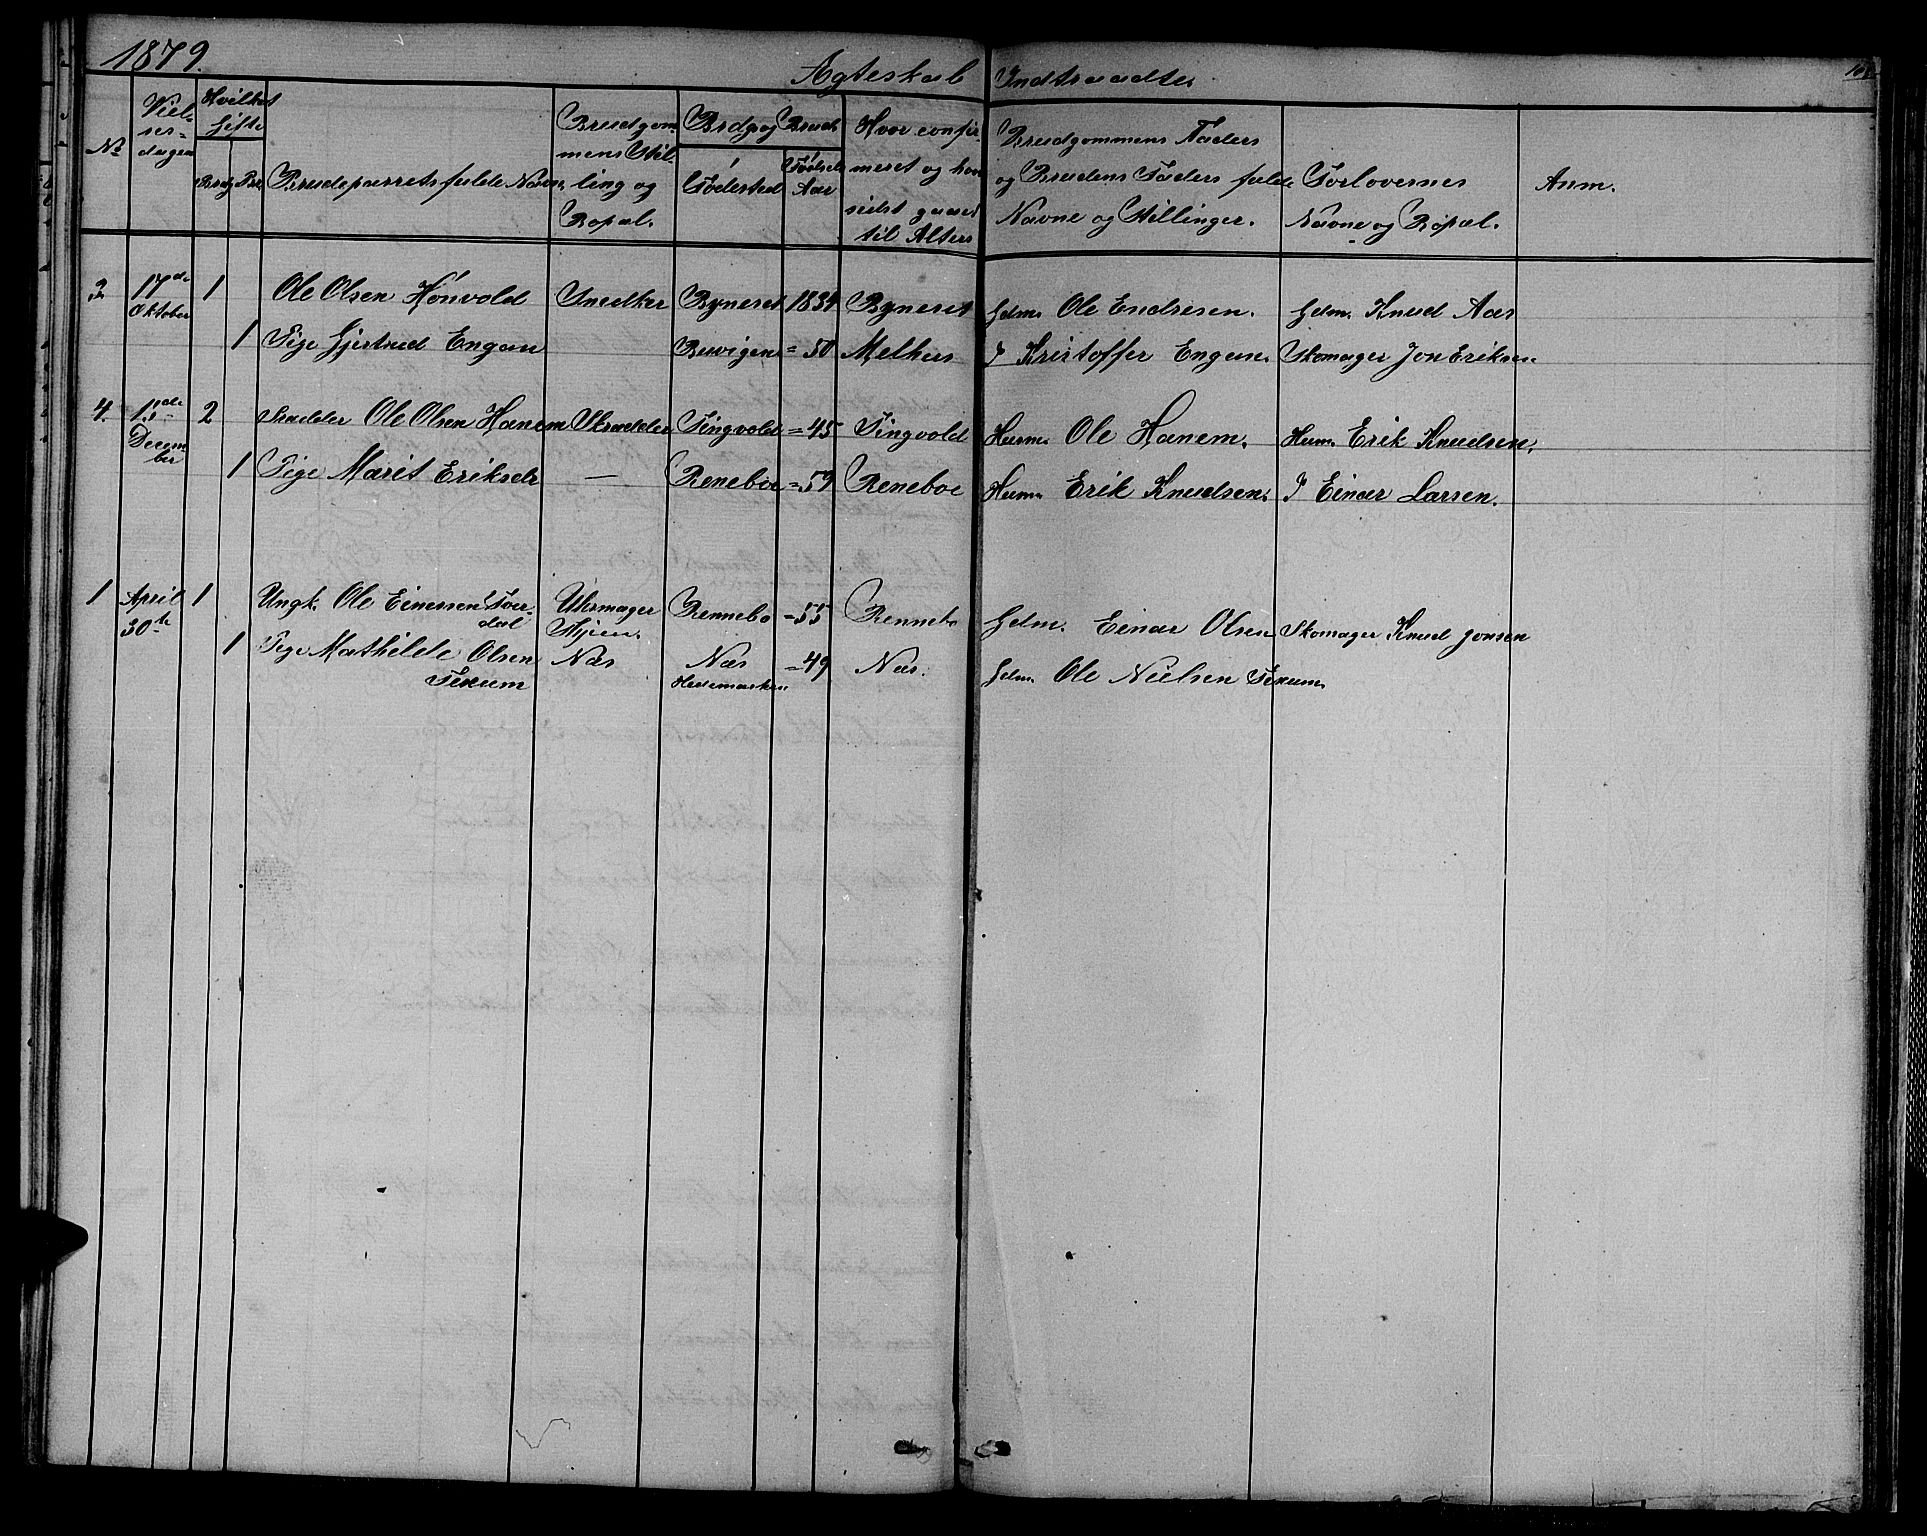 1879.
Ægteskab Indtraadte
No
Viel-
ses-
dagen
Hvilket
Gifte
Brdg Br.
Brudeparrets fulde Navn
Brudgom-
mens Stil-
ling og
Bopæl.
Brdg og Brud
Fødested
Fødsels
Aar
Hvor confir-
meret og hvor
sidst gaaet
til Alters
Brudgommens Faders
og Brudens Faders fulde
Navne og Stillinger.
Forlovernes
Navne og Bopæl.
Anm.
3 17de Oktober 1 Ole Olsen Hønvold Snedker Byneset 1834 Byneset Gdm. Ole Endresen. Gdm. Knud Aas
1 Pige Gjertrud Engan = 50 Melhus Kristoffer Engen. Skomager Jon Eriksen
4. 15de Decem
ber 2 Skrædder Ole Olsen Hanem Skrædder Tingvold = 45 Tingvold Husm. Ole Hanem. Husm. Erik Knudsen.
1 Pige Marit Eriksdr — Reneboe = 59 Reneboe Husm. Erik Knudsen. Einar Larsen.
1 April
30te 1 Ungk. Ole Einersen Uhrmager Rennebo = 55 Rennebo Gdm. Einar Olsen Skomager Knud Jonsen
1 Pige Mathilde Olsen Næs Næs = 49 Næs. Gdm. Ole Nielsen
Hedemarken